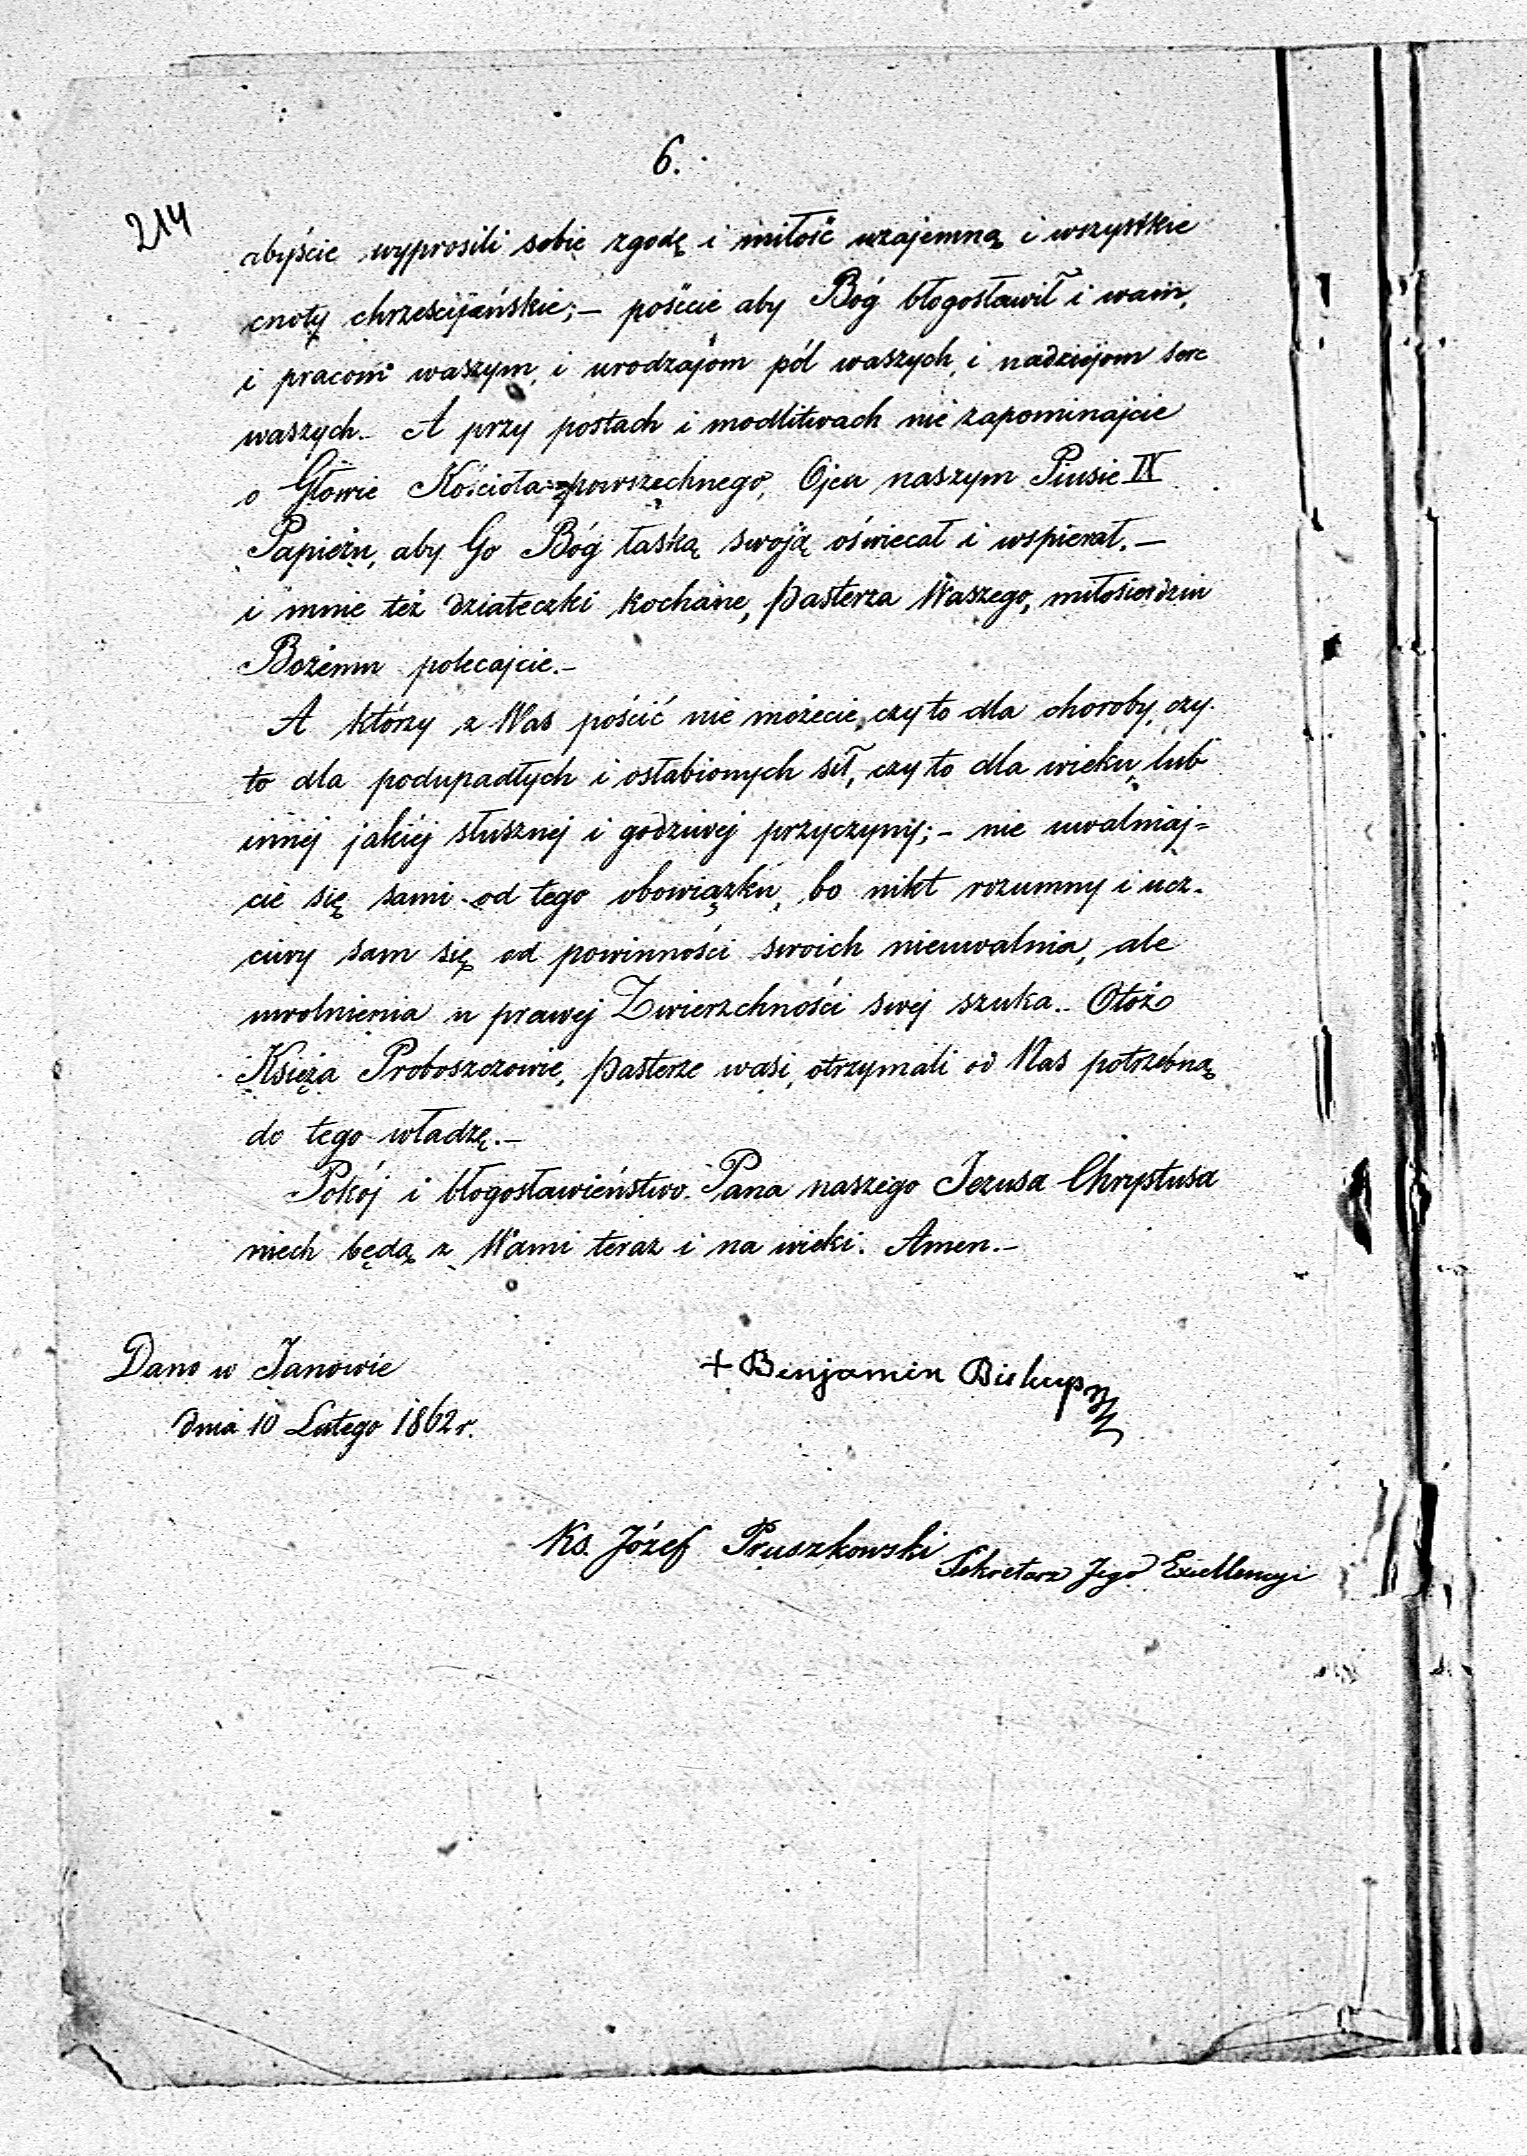 6.
214
abyście wyprosili sobie zgodę i miłość wzajemną i wszystkie
cnoty chrześcijańskie; – pośćcie aby Bóg błogosławił i wam,
i pracom waszym, i urodzajom pól waszych, i nadziejom serc
waszych. A przy postach i modlitwach nie zapominajcie
o Głowie Kościoła powszechnego, Ojcu naszym Piusie IX
Papieżu, aby Go Bóg łaską swoją oświecał i wspierał. –
i mnie też dziateczki kochane, Pasterza Waszego, miłosierdziu
Bożemu polecajcie. –
A którzy z Was pościć nie możecie, czy to dla choroby, czy
to dla podupadłych i osłabionych sił, czy to dla wieku, lub
innej jakiéj słusznej i godziwej przyczyny; – nie uwalniaj=
cie się sami od tego obowiązku, bo nikt rozumny i ucz-
ciwy sam się od powinności swoich nieuwalnia, ale
uwolnienia u prawej Zwierzchności swej szuka. Otóż
Księża Proboszczowie, Pasterze wasi, otrzymali od Nas potrzebną
do tego władzę. –
Pokój i błogosławieństwo Pana naszego Jezusa Chrystusa
niech będą z Wami teraz i na wieki. Amen. –
Dano w Janowie
dnia 10 Lutego 1862 r.
+ Benjamin Biskup
Ks. Józef Pruszkowski
Sekretarz Jego Excellencyi